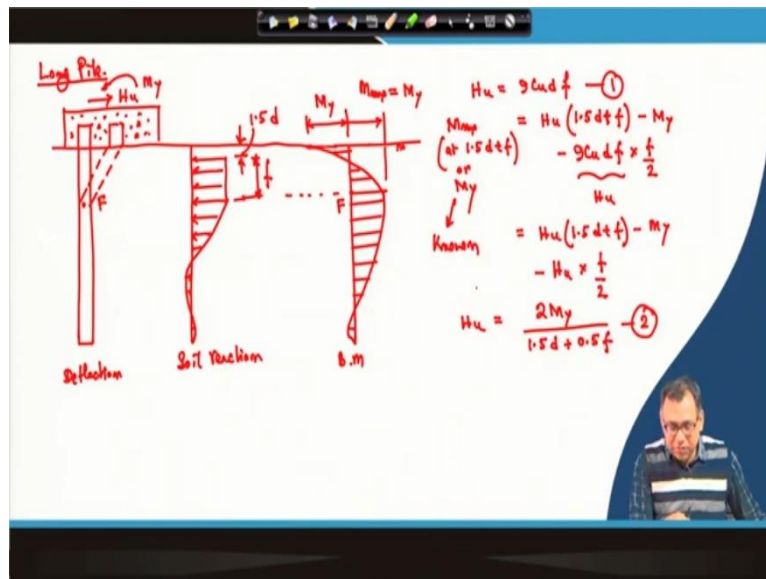 Long Pile.
My
Hu
1.5d
My
Mmax = My
f
F
F
Deflection
Soil reaction
B.M
Hu = 9Cudf —①
Mmax = Hu(1.5d+f) - My
(at 1.5d+f)
- 9Cudf × f/2
or
Hu
My
Known
= Hu(1.5d+f) - My
- Hu × f/2
Hu = 2My / 1.5d + 0.5f —②